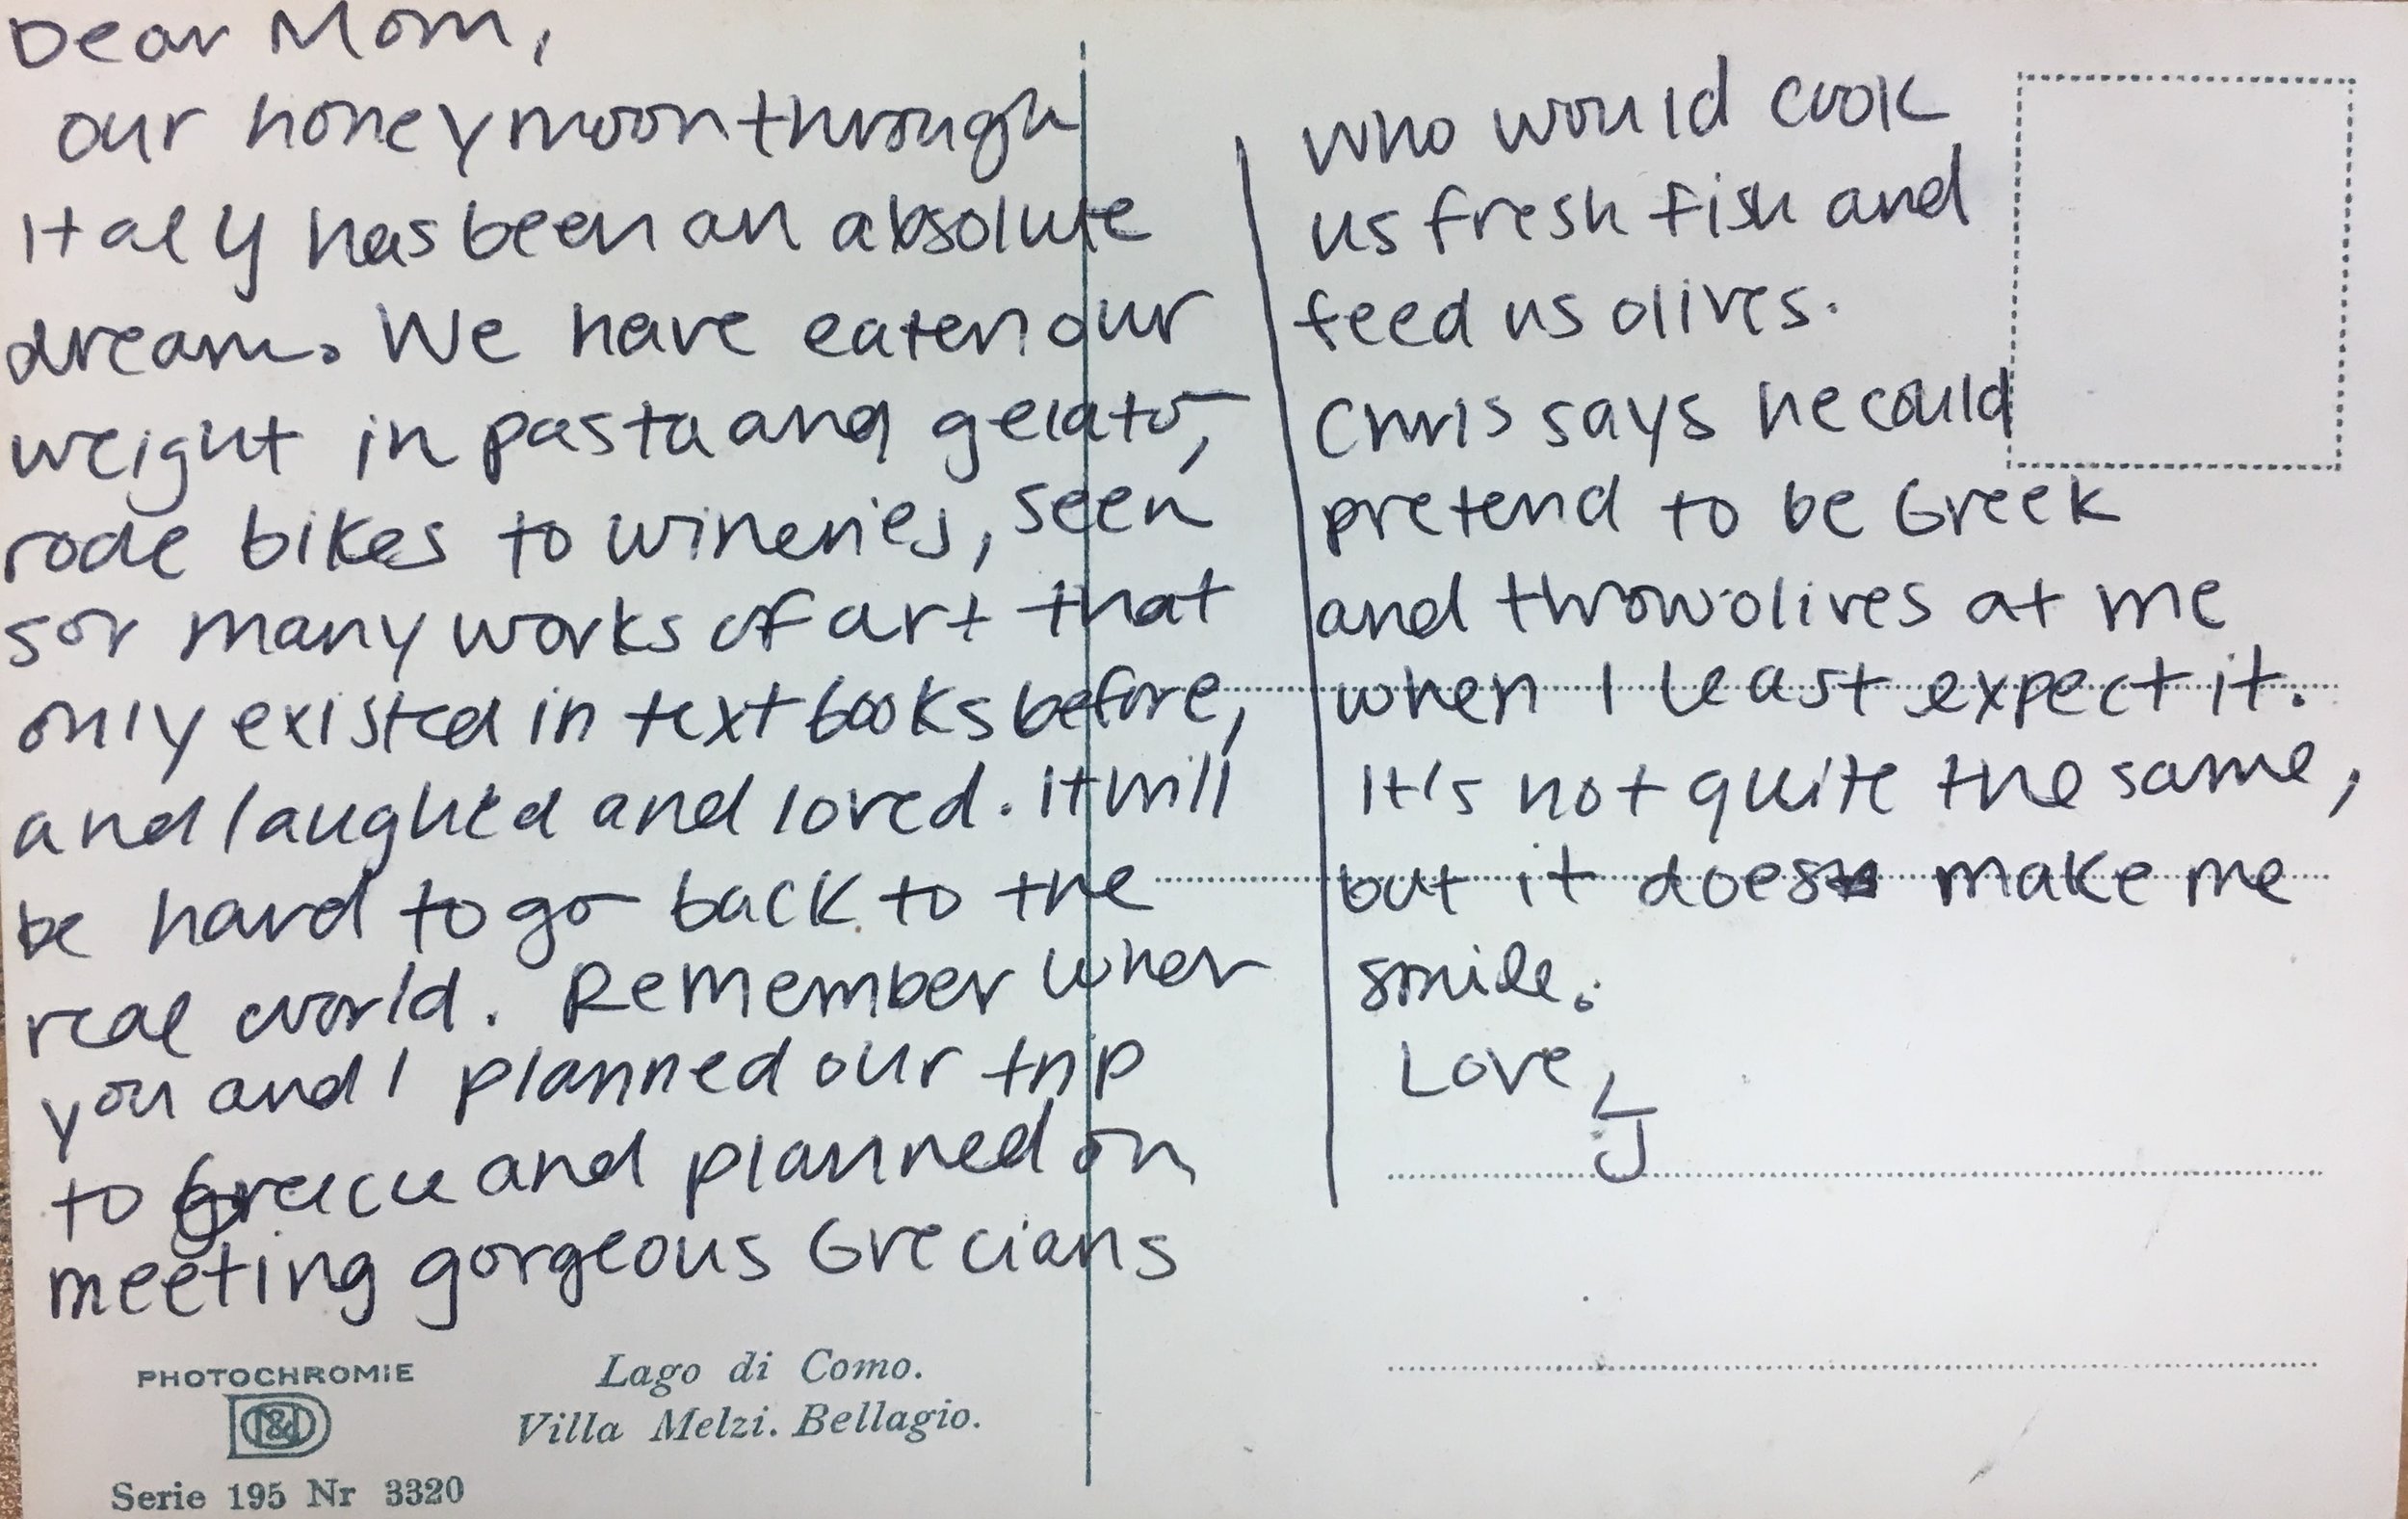 Dear Mom,
our honeymoon through
Italy has been an absolute
dream. We have eaten our
weight in pasta and gelato,
rode bikes to wineries, seen
so many works of art that
only existed in textbooks before,
and laughed and loved. It will
be hard to go back to the
real world. Remember when
you and I planned our trip
to Greece and planned on
meeting gorgeous Grecians
who would cook
us fresh fish and
feed us olives.
Chris says he could
pretend to be Greek
and throw olives at me
when I least expect it.
It's not quite the same,
but it does make me
smile.
Love,
J
PHOTOCHROMIE
Serie 195 Nr 3320
Lago di Como.
Villa Melzi. Bellagio.